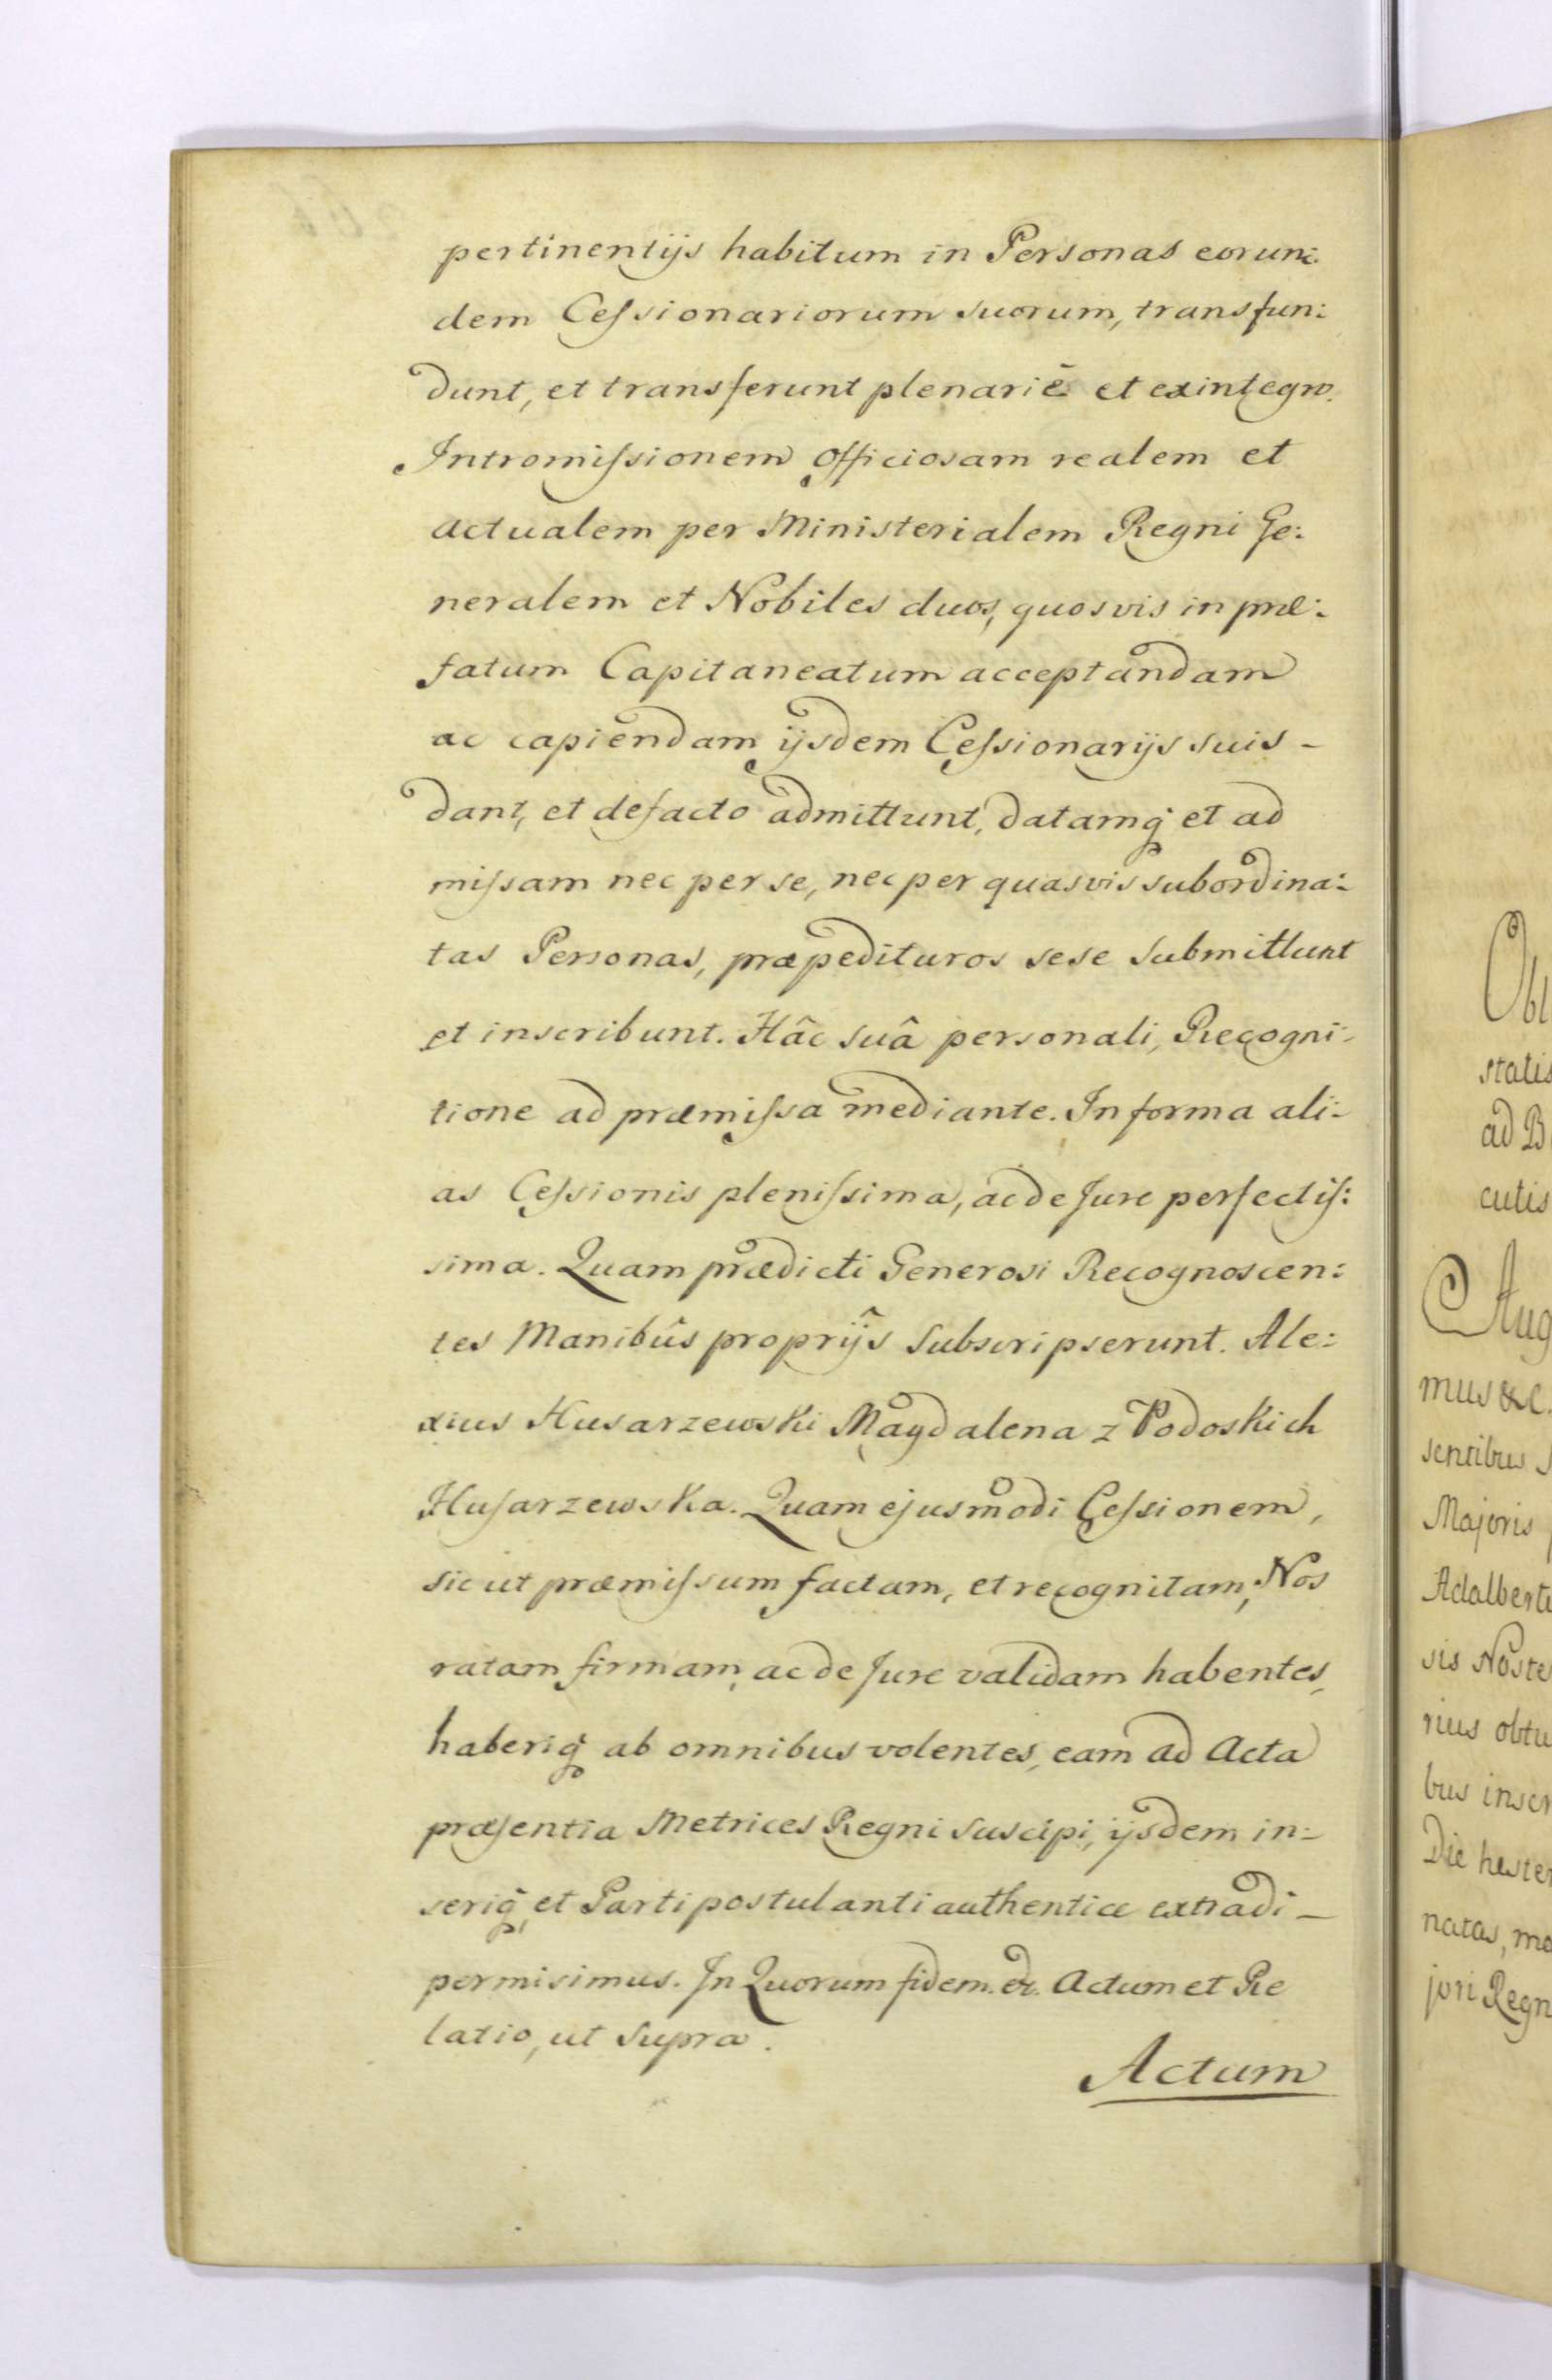 pertinentijs habitum in Personas eorun:
dem Ceſsionariorum suorum, transfun:
dunt, et transferunt plenariè et exintegro.
Intromiſsionem officiosam realem et
actualem per Ministerialem Regni Ge:
neralem et Nobiles duos, quosvis in præ:
fatum Capitaneatum acceptandam
ac capiendam ijsdem Ceſsionarijs suis -
dant, et defacto admittunt, datamq; et ad
miſsam nec per se, nec per quasvis subordina:
tas Personas, præpedituros sese submittunt
et inscribunt. Hâc suâ personali, Recogni:
tione ad præmiſsa mediante. In forma ali:
as Ceſsionis pleniſsima, ac de Jure perfectiſ:
sima. Quam prædicti Generosi Recognoscen:
tes Manibûs proprijs subscripserunt. Ale:
xius Husarzewski Magdalena z Podoskich
Huſarzewska. Quam ejusmodi Ceſsionem,
sicut præmiſsum factam, et recognitam, Nos
ratam firmam, ac de Jure validam habentes,
haberiq; ab omnibus volentes, eam ad Acta
præſentia Metrices Regni suscipi, ijsdem in:
seriq;, et Parti postulanti authentice extradi -
permisimus. In Quorum fidem. &. Actum et Re
latio, ut supra.
Actum
Obl
statis
ad B
cutis
Aug
mus &c.
sentibus
Majoris
Adalbert
sis Noste
rius obtu
bus inscr
Die hester
natas, ma
jori Regn